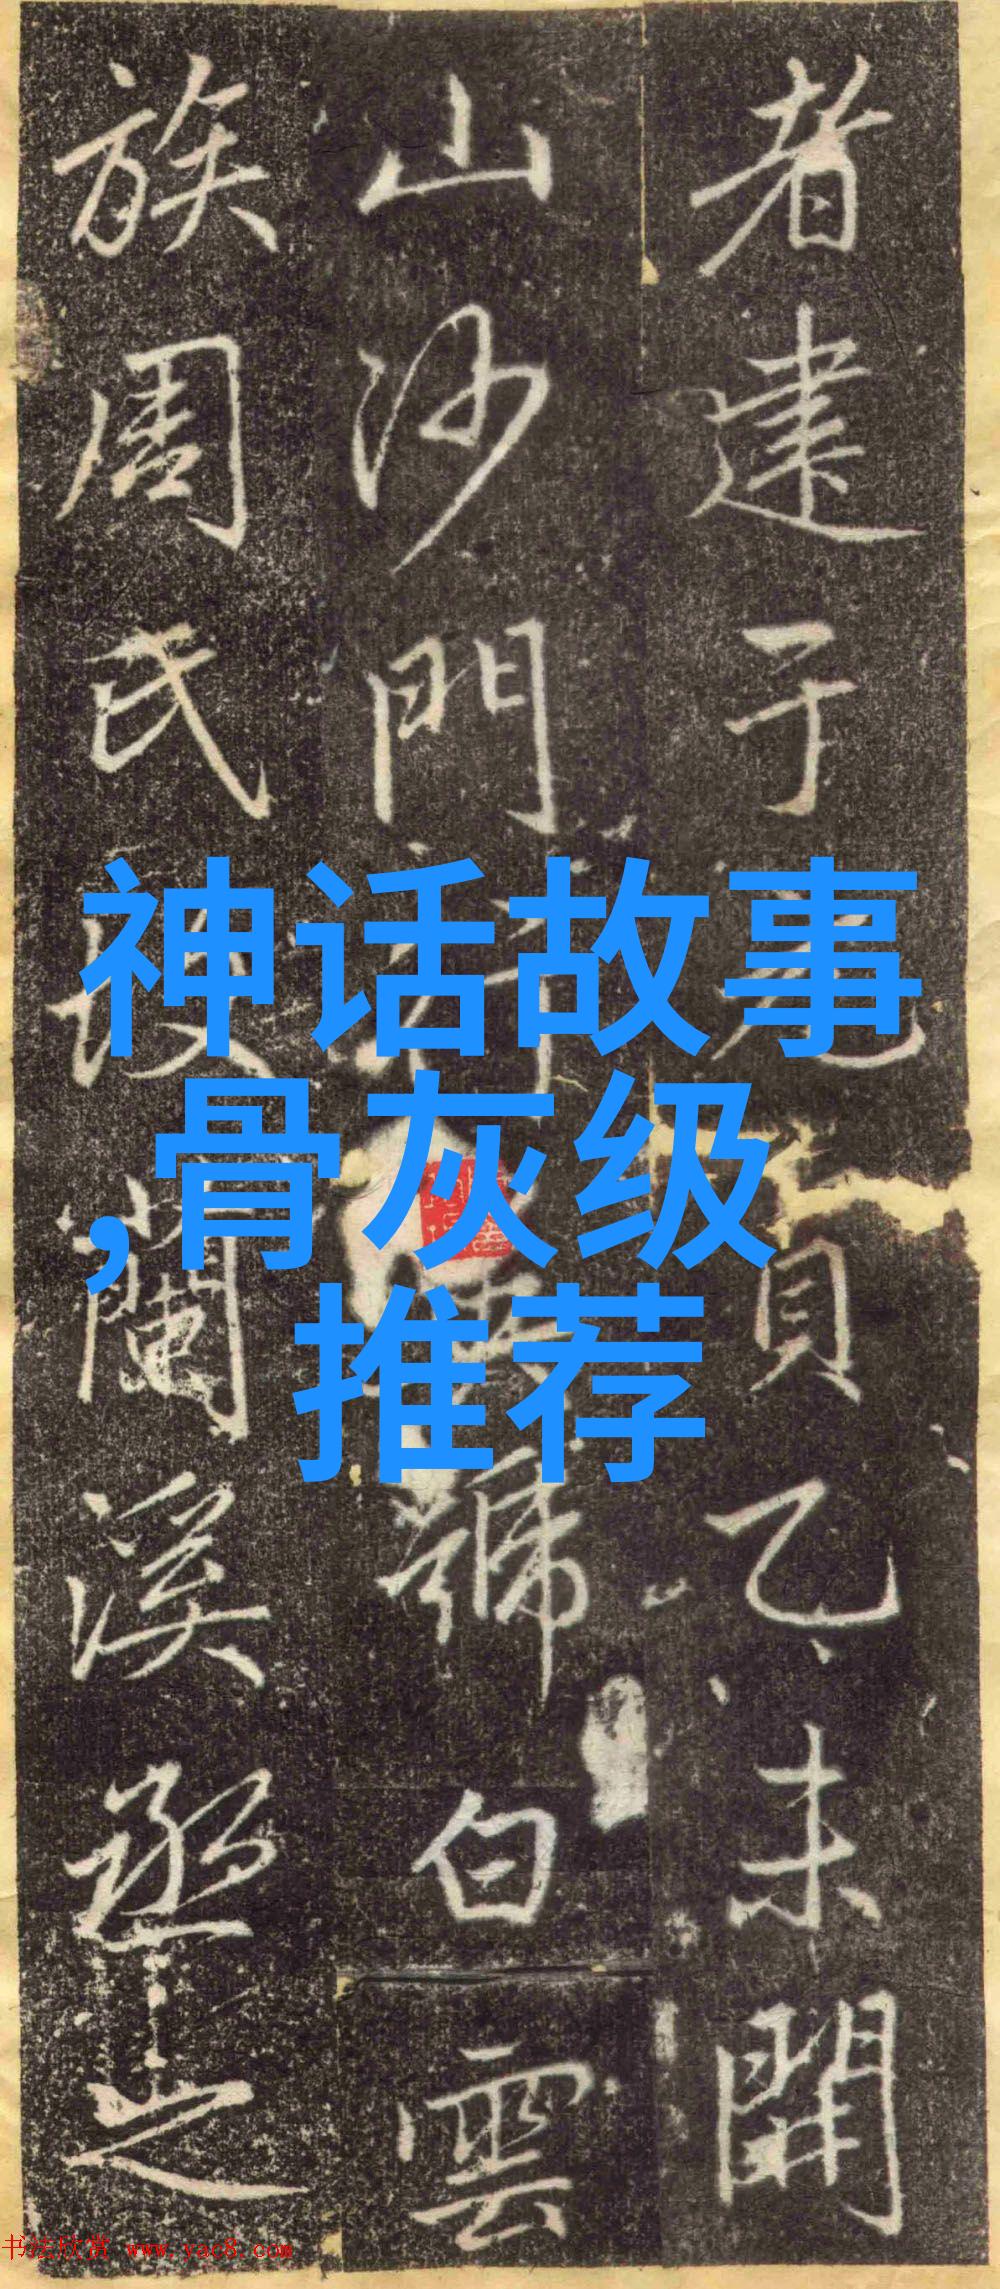 者建子貢乙未開
山沙門號白雲
族周氏蘭溪丞之
神话故事
,骨灰级
推荐
书法欣赏 www.yac8.com